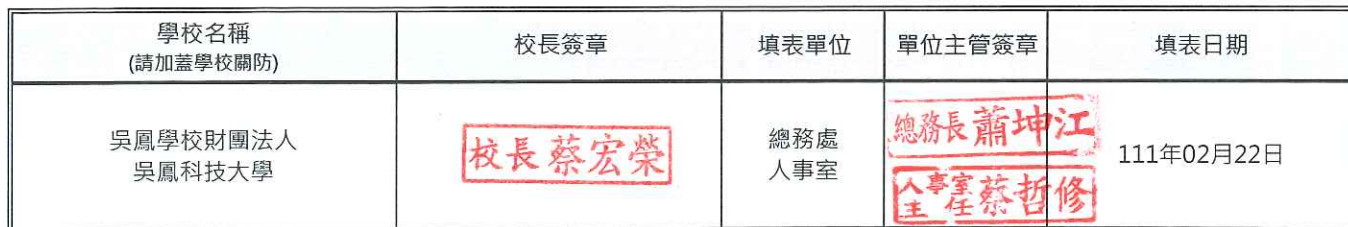 學校名稱
(請加蓋學校關防)
校長簽章
填表單位
單位主管簽章
填表日期
吳鳳學校財團法人
吳鳳科技大學
校長蔡宏榮
總務處
人事室
總務長蕭坤江
人事室
主任蔡哲修
111年02月22日